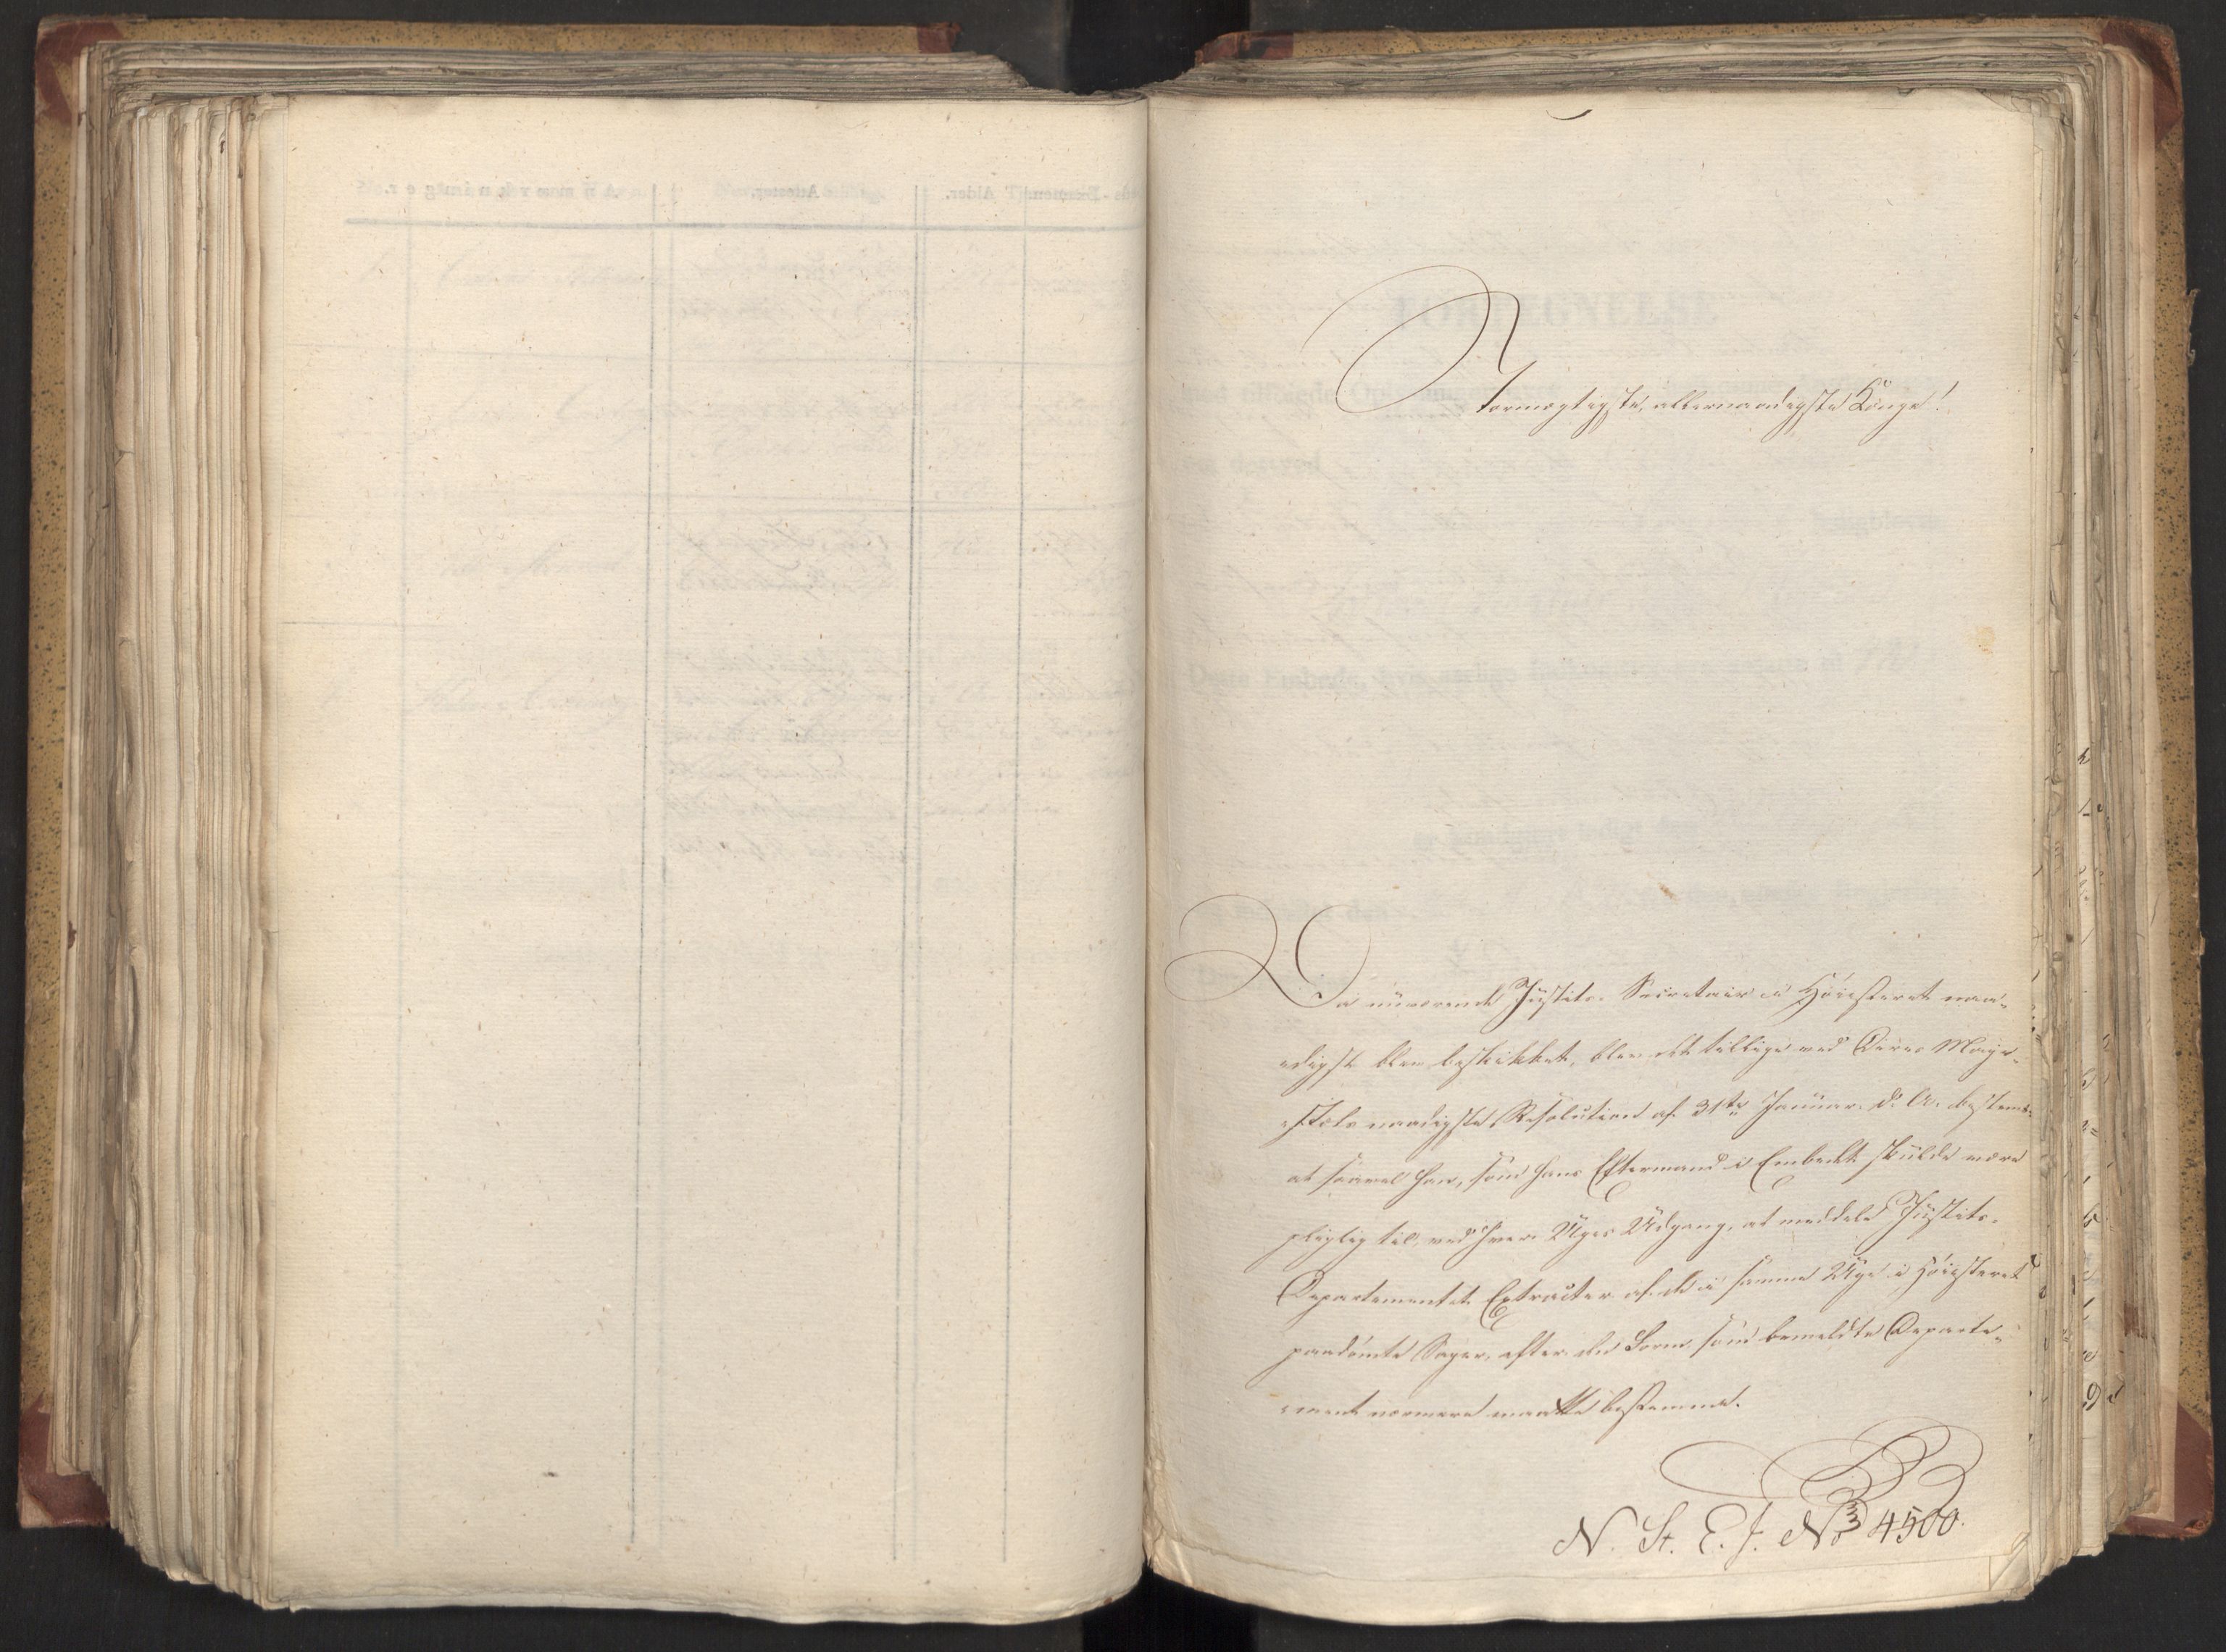 Stormægtigste, allernaadigste Konge!
Da nuværende Justits-Secretair i Høiesteret naa-
digst blev beskikket, blev det tillige ved Deres Maje-
stæts naadigste Resolution af 31te Januar d: A. bestemt,
at saavel han, som hans Eftermand i Embedet skulde være
pligtig til, ved hver Uges Udgang, at meddele Justits-
Departementet Extracter af de i samme Uge i Høiesteret
paadømte Sager, efter den Form, som bemeldte Departe-
ment nærmere maatte bestemme.
N. St. E. J. No 4500.